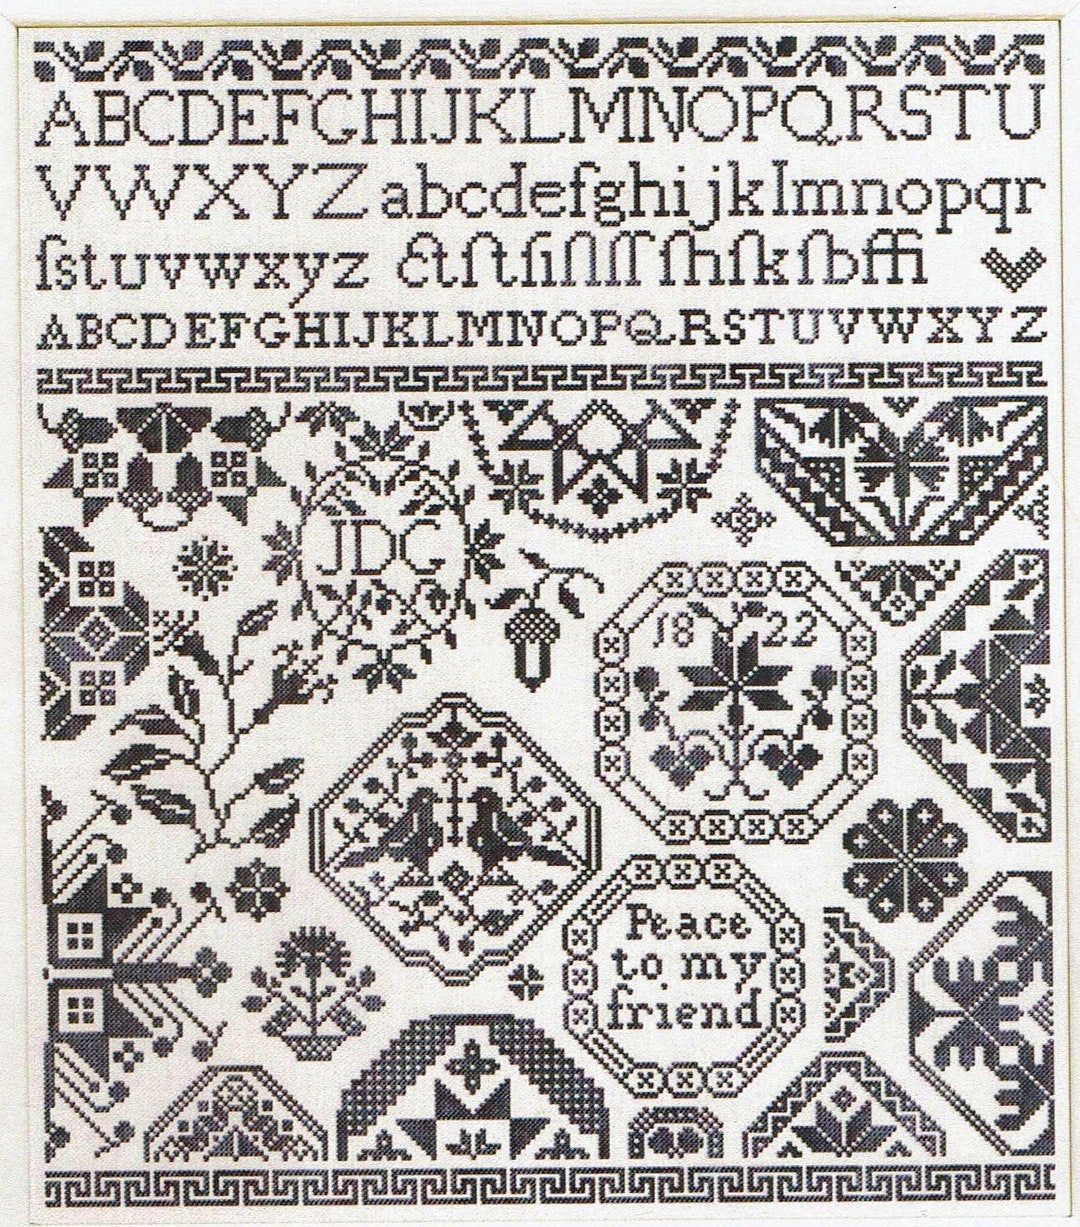 ABCDEFGHIJKLMNOPQRSTU
VWXYZ abcdefghijklmnopqr
ſstuvwxyz ctſtſiſlſſſhſkſbffi
ABCDEFGHIJKLMNOPQRSTUVWXYZ
JDC
18 22
Peace
to my
friend